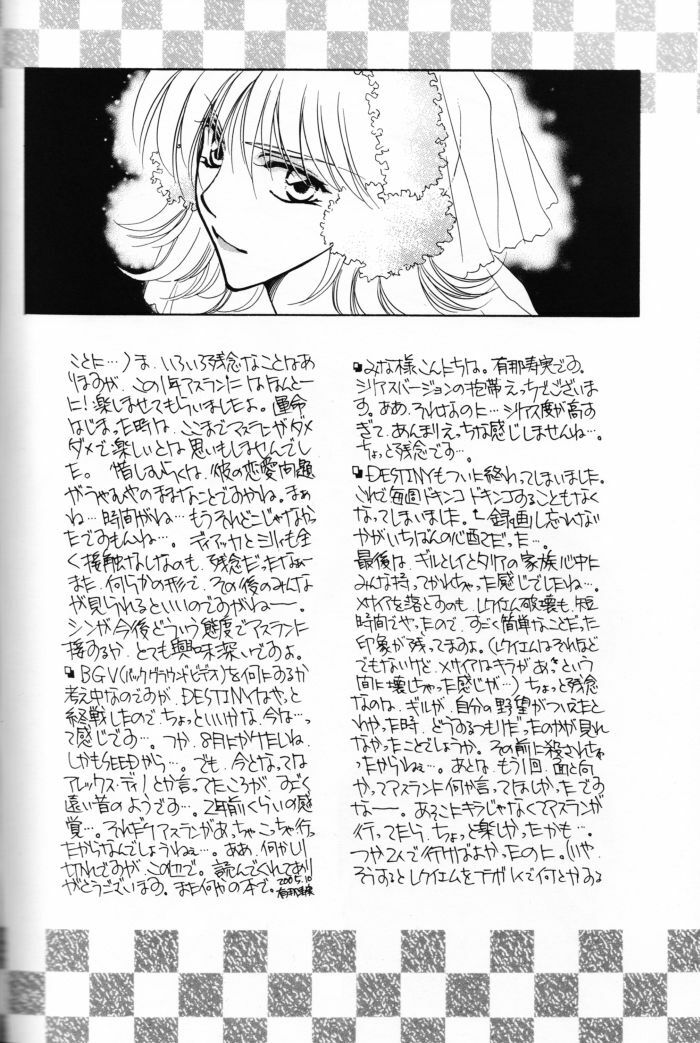 ■みな様こんにちは。有那寿実です。
シリアスバージョンの抱帯えっちでございま
す。ああ、それなのに…シリアス度が高す
ぎて、あんまりえっちな感じしませんね…。
ちょっと残念です…。
■DESTINYもついに終わってしまいました。
これで毎週ドキンコドキンコすることもなく
なってしまいました。←録画し忘れない
かがいちばんの心配でだった…。
最後は、ギルとレイとタリアの家族心中に
みんな持ってかれちゃった感じでしたね…。
メサイアを落とすのも、レクイエム破壊も、短
時間でやったので、すごく簡単なことだった
印象が残ってますよ。(レクイエムはそれほど
でもないけど、メサイアはキラがあっという
間に壊しちゃった感じが…)ちょっと残念
なのは、ギルが、自分の野望がついえたと
わかった時、どうするつもりだったのかが見れ
なかったことでしょうか。その前に殺されちゃ
ったからねぇ…。あとは、もう1回、面と向
かってアスランに何か言ってほしかったです
なーー。あそこにキラじゃなくてアスランが
行ってたら、ちょっと楽しかったかも…。
つか2人で行けばよかったのに。(いや、
そうするとレクイエムをゴナがしくて何とかする
ことに…)ま、いろいろ残念なことはあ
りますが、この1年アスランにはほんとー
に!楽しませてもらいましたよ。運命
はじまった時は、ここまでアスランがダメ
ダメで楽しいとは思いもしませんでし
た。惜しむらくは、彼の恋愛問題
がうやむやのままなことですかね。まぁ
ね…時間がね…もうそれどこじゃなかっ
たですもんね…。ディアッカとミリィも全
く接触なしなのも、残念だったなぁー
また、何らかの形で、その後のみんな
が見られるといいのですがねーー。
シンが今後どういう態度でアスランに
接するか、とても興味深いですよ。
■BGV(バックグラウンドビデオ)を何にするか
考え中なのですが、DESTINYはやっと
終戦したのでちょっといいかな、今は…っ
て感じです…。つか、8月にかけたいね、
しかもSEEDから…。でも、今となっては
アレックス・ディノとか言ってたころが、すごく
遠い昔のようです…。2年前くらいの感
覚…。それだけアスランがあっちゃこっちゃ行っ
たからなんでしょうねぇ…。ああ、何かしり
切れですが、この辺で。読んでくれてあり
がとうございます。また何かの本で。2005.10
有那寿実